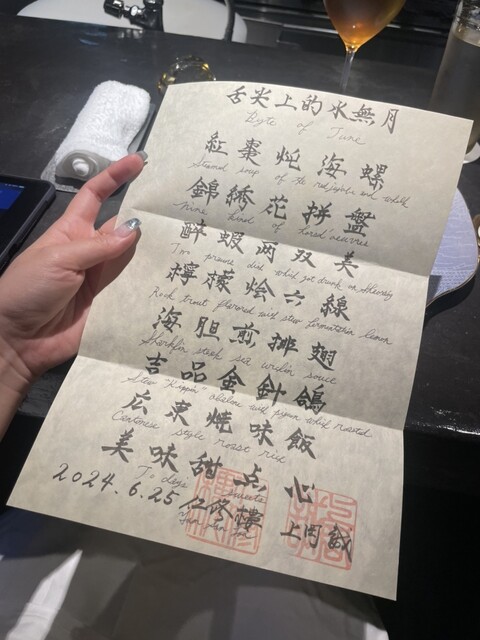 舌尖上的水無月
Byte of June
紅棗炖海螺
Steamed soup of the red jujube and whelk
錦綉花拼盤
Nine kind of hored'oeuvres
醉蝦两双美
Two prawns dish which got drunk on Shaoxing
檸檬烩六線
Rock trout flavored with stew fermentation lemon
海胆煎排翅
Sharkfin steak sea urchin souce
吉品金針鴿
Stew Kippin abalone with pigeon which roasted
広東焼味飯
Cantonese style roast rice
美味甜点心
To days sweets
2024.6.25
仁修樓
上岡誠